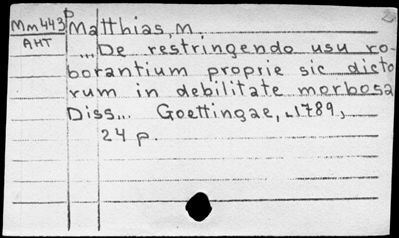 Mm443p Matthias, M.
AHT ...De restringendo usu ro-
borantium proprie sic dicto
rum in debilitate morbosa
Diss... Goettingae, 1789,
24 p.